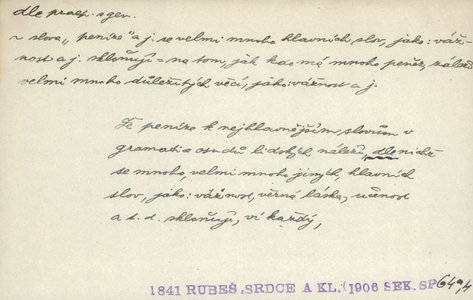 dle praep. s gen.
~ slova „peníze" a j. se velmi mnoho hlavních slov, jako: váž-
nost a j. skloňují = na tom, jak kdo má mnoho peněz, záleží
velmi mnoho důležitých věcí, jako: vážnost a j.
Že peníze k nejhlavnějším slovům v
gramatice osudů lidských náleží, dle nichž
se mnoho, velmi mnoho jiných, hlavních
slov, jako: vážnost, věrná láska, učenost
a t. d. skloňují, ví každý,
1841 RUBEŠ, SRDCE A KL. (1906 SEK. SP. 64